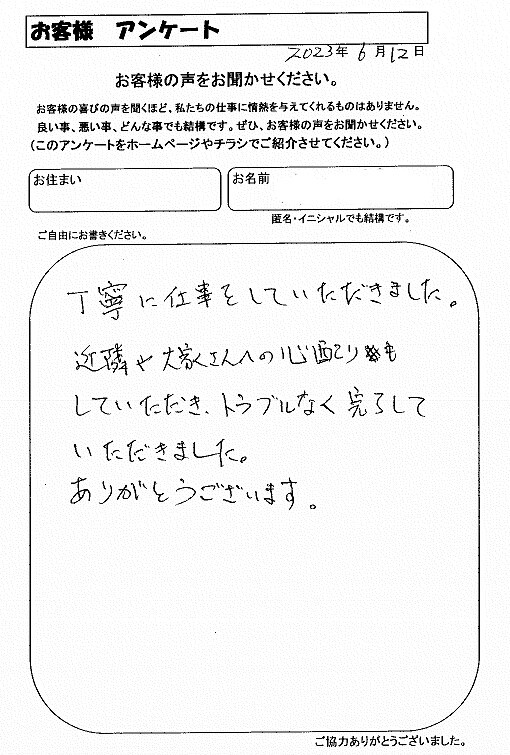 お客様 アンケート
2023年 6月12日
お客様の声をお聞かせください。
お客様の喜びの声を聞くほど、私たちの仕事に情熱を与えてくれるものはありません。
良い事、悪い事、どんな事でも結構です。ぜひ、お客様の声をお聞かせください。
(このアンケートをホームページやチラシでご紹介させてください。)
お住まい
お名前
匿名・イニシャルでも結構です。
ご自由にお書きください。
丁寧に仕事をしていただきました。
近隣や大家さんへの心配りも
していただき、トラブルなく完了して
いただきました。
ありがとうございます。
ご協力ありがとうございました。